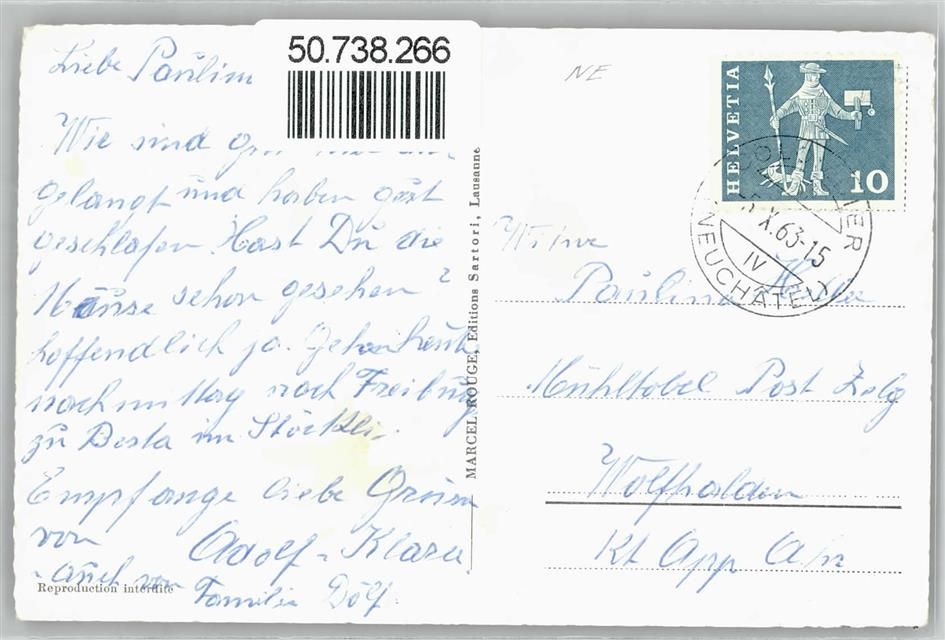 50.738.266
Liebe Paulin
Wie sind
gelangt und haben gut
geschlafen. Hast Du die
Häuse schon gesehen?
hoffendlich ja. Gehen heute
nachmittag nach Freiburg
zu Berta im Stöckli.
Empfange liebe Grüsse
von Adolf - Klara
- auch von
Familie Dölf.
Reproduction interdite
MARCEL ROUGE, Editions Sartori, Lausanne
NE
HELVETIA
10
X.63-15
IV
(NEUCHÂTEL)
Witwe
Paulina
Mühltobel Post Zelg
Wolfhalden
Kt App A.Rh